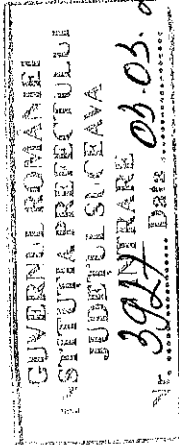 GUVERNUL ROMANIEI
INSTITUTIA PREFECTULUI
JUDETUL SUCEAVA
INTRARE
Nr. 3927 Data 03.03.